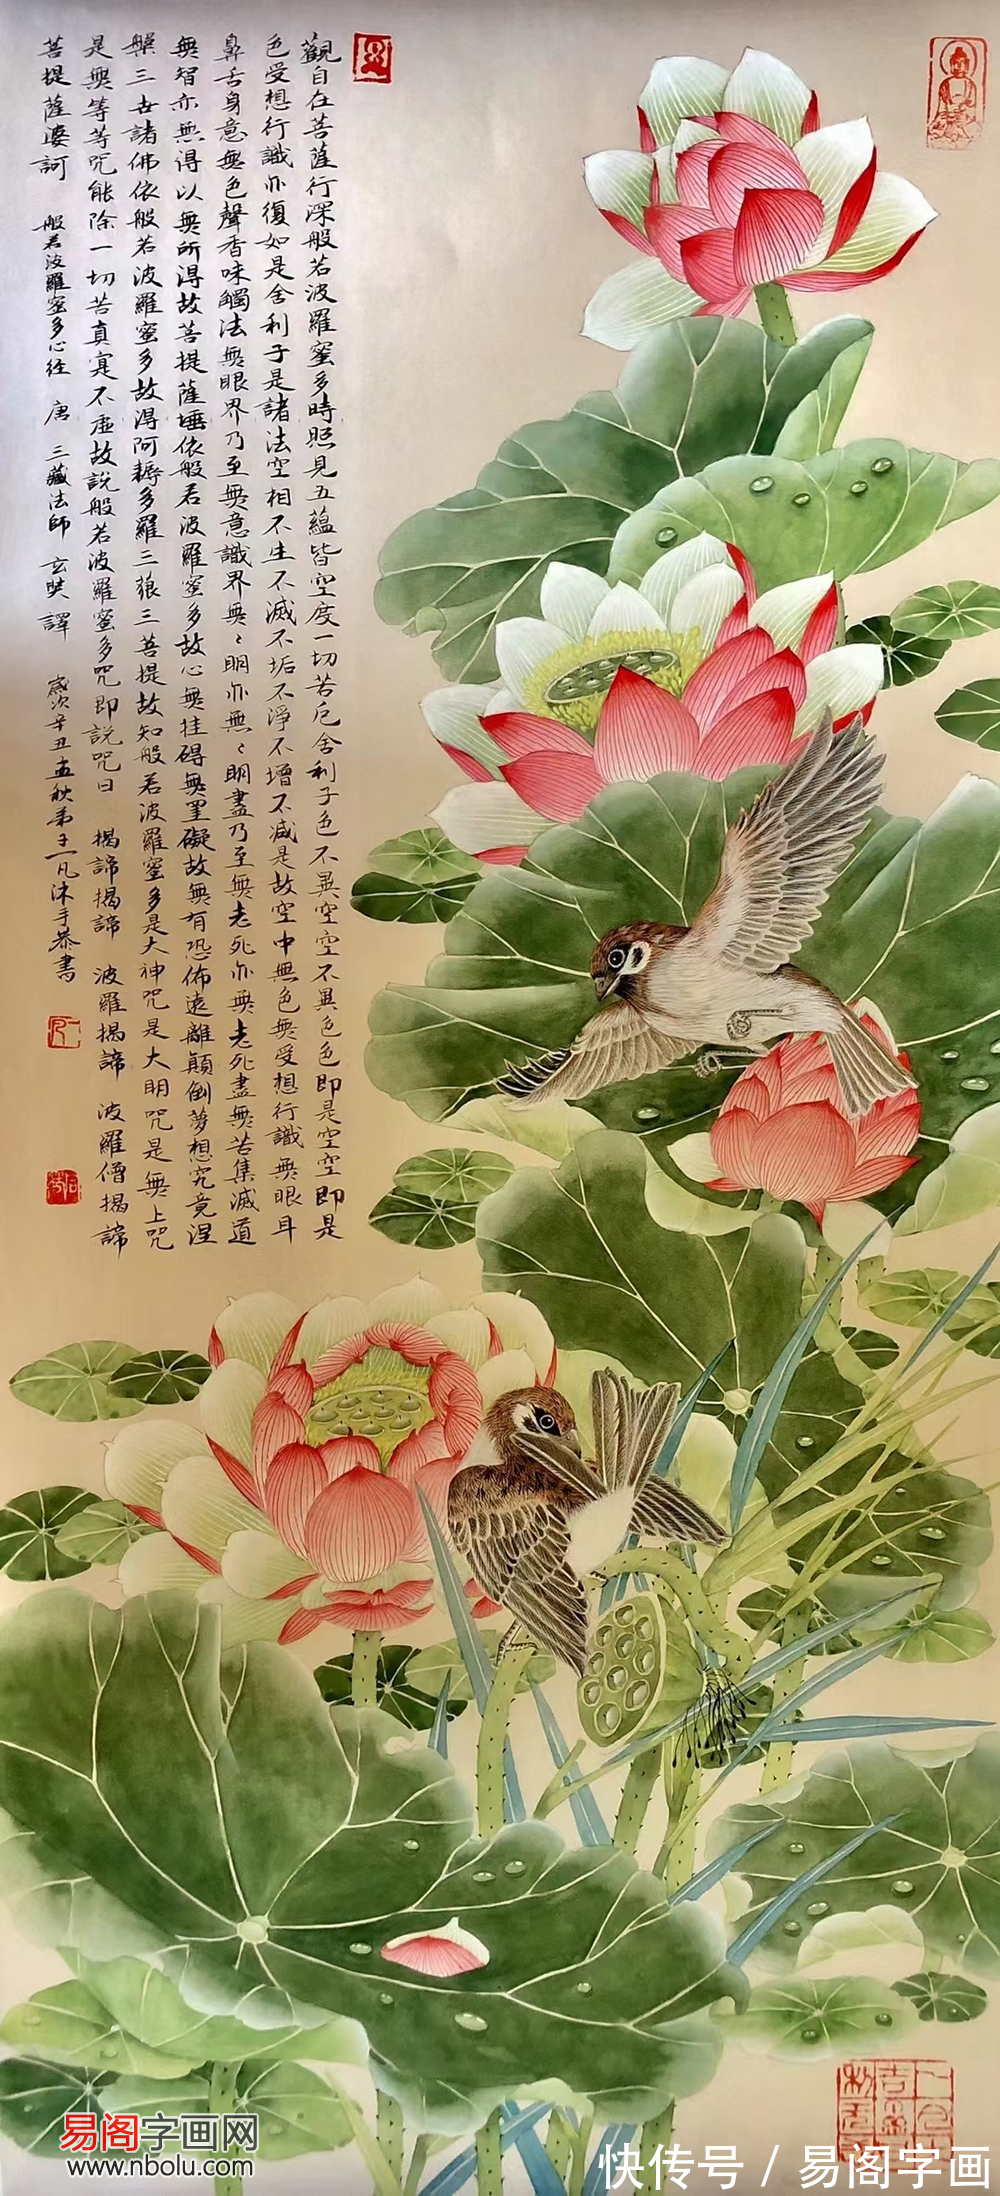 觀自在菩薩行深般若波羅蜜多時照見五蘊皆空度一切苦厄舍利子色不異空空不異色色即是空空即是
色受想行識亦復如是舍利子是諸法空相不生不滅不垢不淨不增不減是故空中無色無受想行識無眼耳
鼻舌身意無色聲香味觸法無眼界乃至無意識界無〻明亦無〻明盡乃至無老死亦無老死盡無苦集滅道
無智亦無得以無所得故菩提薩埵依般若波羅蜜多故心無挂碍無罣礙故無有恐佈遠離顛倒夢想究竟涅
槃三世諸佛依般若波羅蜜多故得阿耨多羅三藐三菩提故知般若波羅蜜多是大神咒是大明咒是無上咒
是無等等咒能除一切苦真寔不虛故說般若波羅蜜多咒即說咒曰 揭諦揭諦 波羅揭諦 波羅僧揭諦
菩提薩婆訶 般若波羅蜜多心经 唐 三藏法師 玄奘 譯 歲次辛丑孟秋弟子一凡沐手恭書
易阁字画网
www.nbolu.com
快传号 / 易阁字画